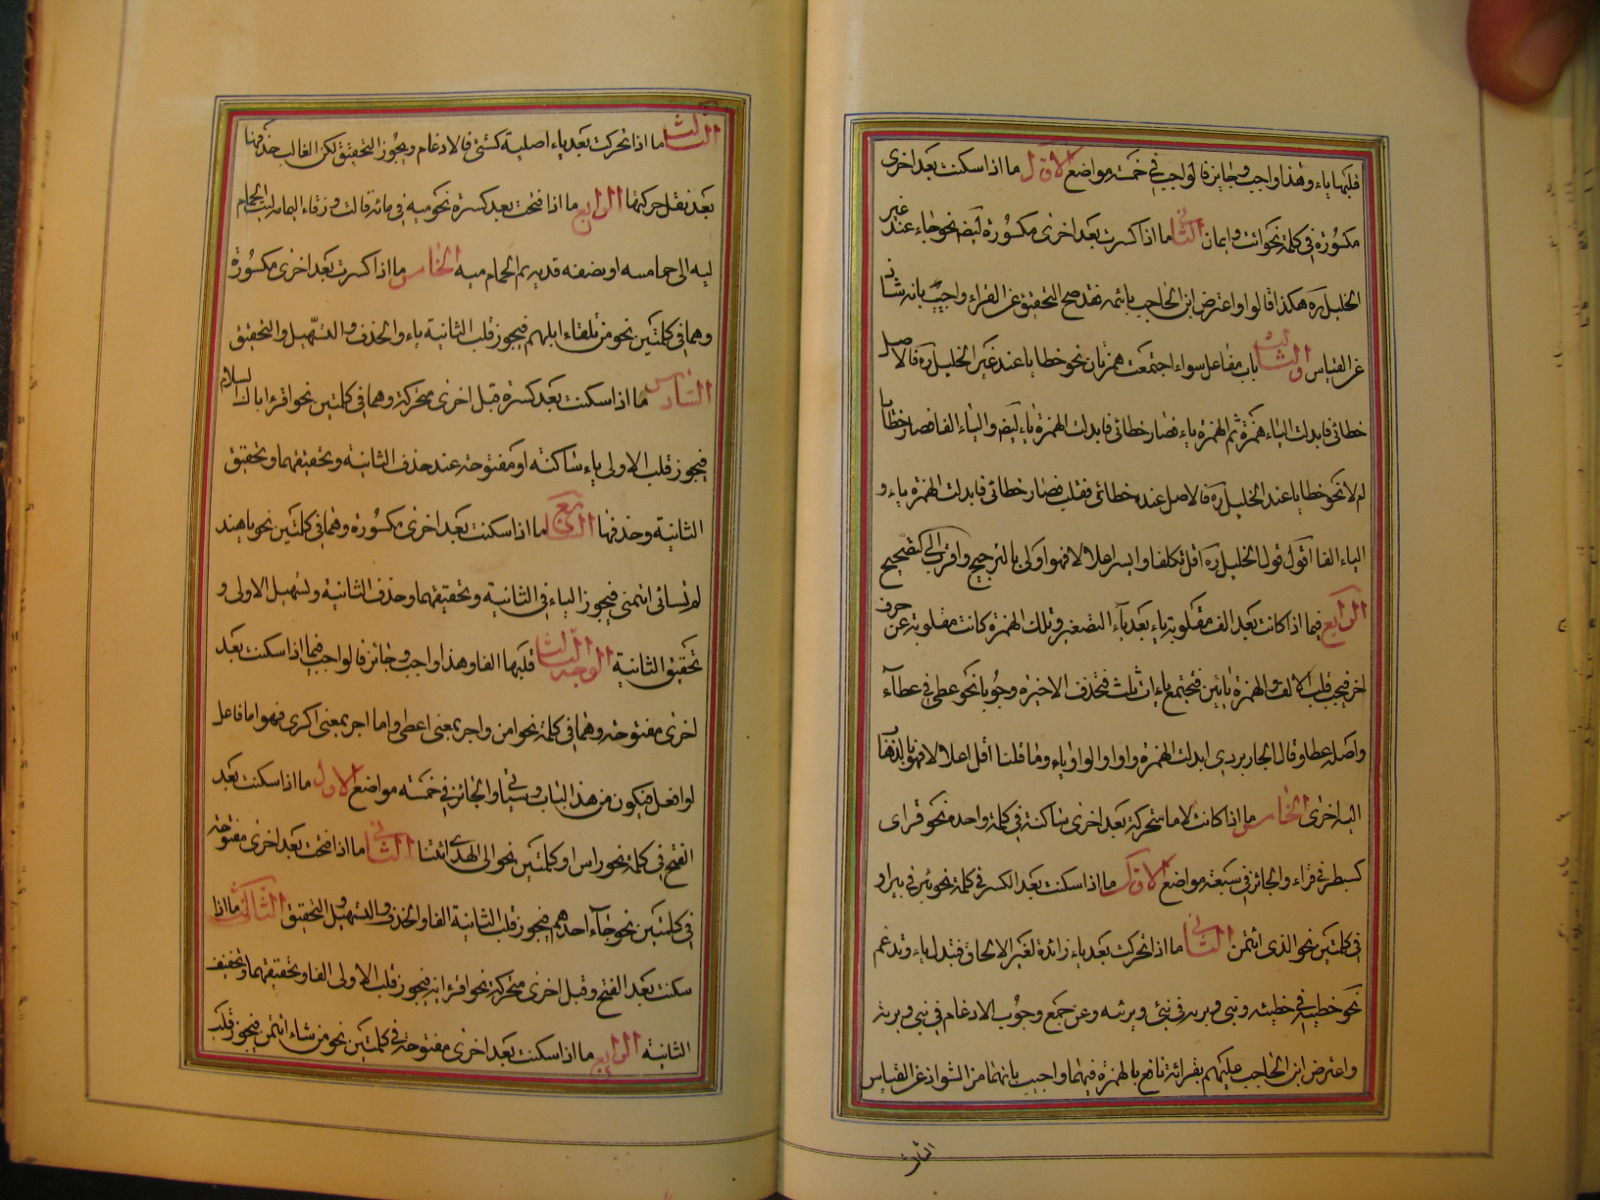 قلبها ياء وهذا واجب وجائز فالواجب في خمسة مواضع الاول ما اذا سكنت بعد اخرى
مكسورة في كلمة نحو ائت وايمان الثاني ما اذا كسرت بعد اخرى مكسورة ايض نحو جاء عند غير
الخليل ره هكذا قالوا واعترض ابن الحاجب بائمه فقد صح التحقيق عن القراء واجيب بانه شاذ
عن القياس والثالث باب مفاعل سواء اجتمعت همزتان نحو خطايا عند غير الخليل ره فالاصل
خطائي فابدلت الياء همزة ثم الهمزة ياء فصار خطائي فابدلت الهمزة ياء ايض والياء الفا فصار خطايا
ام لا نحو خطايا عند الخليل ره فالاصل عنده خطائي فقلب فصار خطائي فابدلت الهمزة ياء و
الياء الفا اقول قول الخليل ره اقل تكلفا وايسر اعلالا فهو اولى بالترجيح واقرب الى التصحيح
الرابع فيما اذا كانت بعد الف مقلوبة ياء بعد ياء التصغير وتلك الهمزة كانت مقلوبة عن حرف
اخر فيجب قلب الالف والهمزة يائين فتجتمع ياءات ثلث فتحذف الاخيرة وجوبا نحو عطي في عطاء
واصله عطاو وقال الجاربردي ابدلت الهمزة واوا والواو ياء وما قلنا اقل اعلالا فهو
اليه اخرى الخامس ما اذا كانت لاما متحركة بعد اخرى ساكنة في كلمة واحدة نحو قراى
كسبطر في قراء والجائز في سبعة مواضع الاول ما اذا سكنت بعد الكسر في كلمة نحو بئر في بير او
في كلمتين نحو الذي ائتمن الثاني ما اذا تحركت بعد ياء زائدة لغير الالحاق فتبدل ياء وتدغم
نحو خطية في خطيئة ونبي وبرية في نبئ وبريئة وعن جمع وجوب الادغام في نبي وبرية
واعترض ابن الحاجب عليهم بقرائة نافع بالهمزة فيهما واجيب بانهما من الشواذ عن القياس
الثالث
الثالث ما اذا تحركت بعد ياء اصلية كشئ فالادغام ويجوز التحقيق لكن الغالب حذفها
بعد نقل حركتها الرابع ما اذا فتحت بعد كسرة نحو ميه في مائة قالت وزقاء اليمامه ليت الحمام
ليه الى حمامتيه او نصفه قديه تم الحمام ميه الخامس ما اذا كسرت بعد اخرى مكسورة
وهما في كلمتين نحو من تلقاء ابلهم فيجوز قلب الثانية ياء والحذف والتسهيل والتحقيق
السادس ما اذا سكنت بعد كسرة قبل اخرى متحركة وهما في كلمتين نحو اقرء اباك السلام
فيجوز قلب الاولى ياء ساكنة او مفتوحة عند حذف الثانية وتحقيقهما وتحقيق
الثانية وحذفها السابع ما اذا سكنت بعد اخرى مكسورة وهما في كلمتين نحو يا هند
لم تسائي ائتمني فيجوز الياء في الثانية وتحقيقهما وحذف الثانية وتسهيل الاولى و
تحقيق الثانية الوجه الثالث قلبها الفا وهذا واجب وجائز فالواجب فيما اذا سكنت بعد
اخرى مفتوحة وهما في كلمة نحو امن واجر بمعنى اعطى واما اجر بمعنى اكرى فهو اما فاعل
او افعل فيكون من هذا الباب وسياتي والجائز في خمسة مواضع الاول ما اذا سكنت بعد
الفتح في كلمة نحو راس او كلمتين نحو الى الهدى ائتنا الثاني ما اذا فتحت بعد اخرى مفتوحة
في كلمتين نحو جاء احدهم فيجوز قلب الثانية الفا والحذف والتسهيل والتحقيق الثالث ما اذا
سكنت بعد الفتح وقبل اخرى متحركة نحو اقرء ايه فيجوز قلب الاولى الفا وتحقيقهما وتخفيف
الثانية الرابع ما اذا سكنت بعد اخرى مفتوحة في كلمتين نحو من شاء ائتمن فيجوز قلب